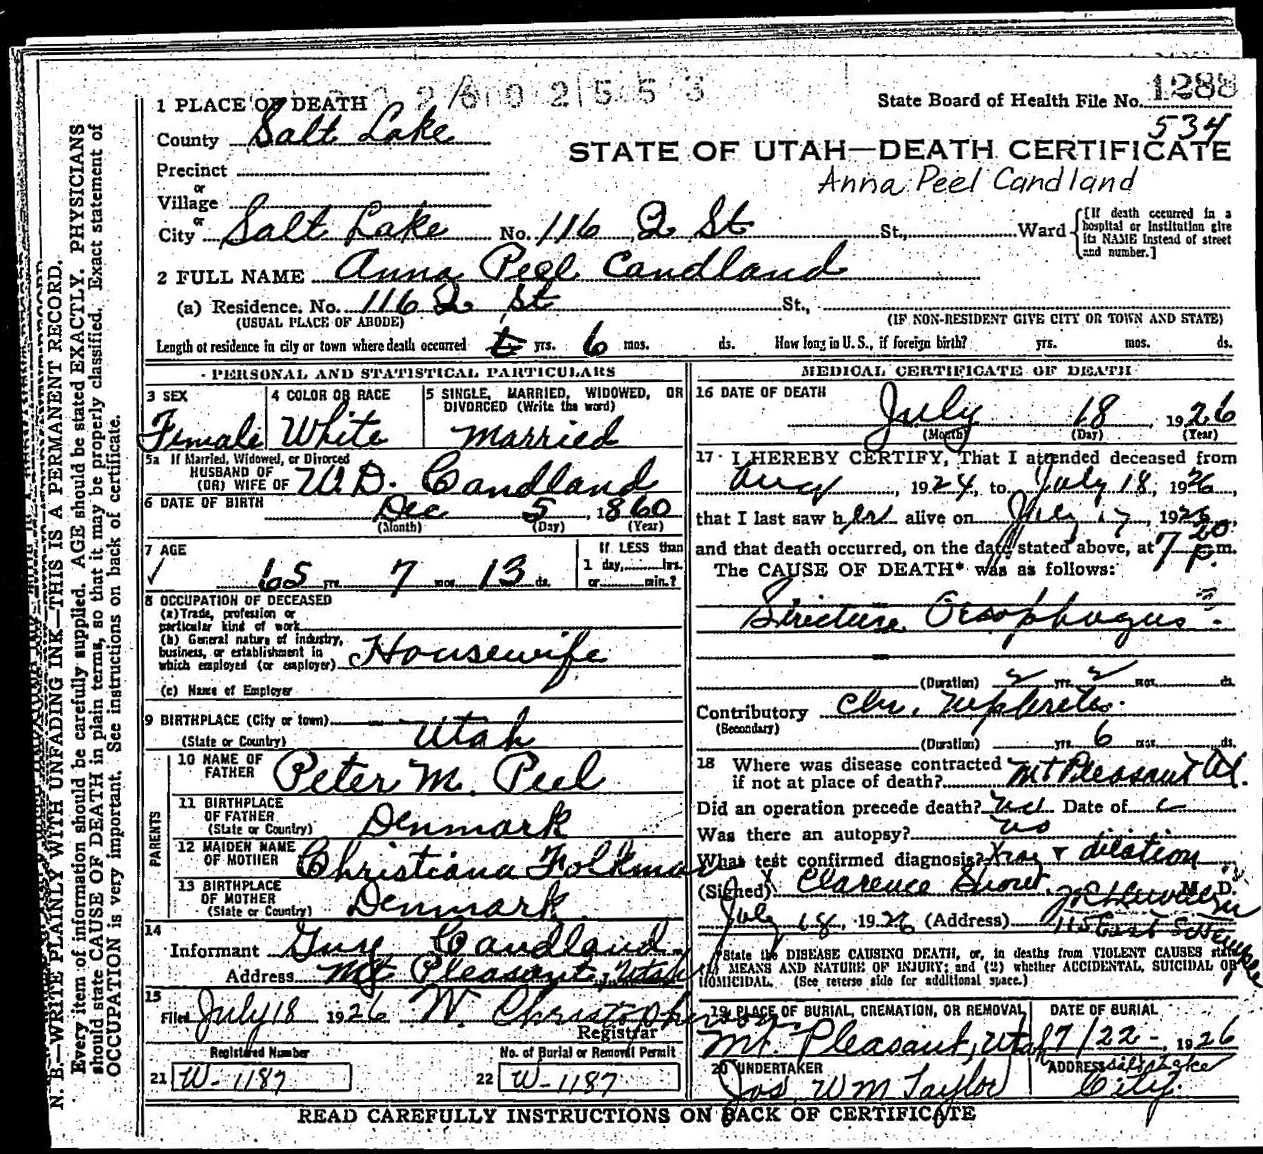 2602553
State Board of Health File No. 1288
534
1 PLACE OF DEATH
County Salt Lake
STATE OF UTAH—DEATH CERTIFICATE
Anna Peel Candland
Precinct
or
Village
or
City Salt Lake No. 116 Q St St., Ward
[If death occurred in a
hospital or institution give
its NAME instead of street
and number.]
2 FULL NAME Anna Peel Candland
(a) Residence. No. 116 Q St St.,
(USUAL PLACE OF ABODE)
(IF NON-RESIDENT GIVE CITY OR TOWN AND STATE)
Length of residence in city or town where death occurred yrs. 6 mos. ds. How long in U. S., if foreign birth? yrs. mos. ds.
PERSONAL AND STATISTICAL PARTICULARS
3 SEX
Female
4 COLOR OR RACE
White
5 SINGLE, MARRIED, WIDOWED, OR
DIVORCED (Write the word)
Married
5a If Married, Widowed, or Divorced
HUSBAND OF
(OR) WIFE OF W. D. Candland
6 DATE OF BIRTH Dec 5, 1860
(Month) (Day) (Year)
7 AGE
65 yrs. 7 mos. 13 ds.
If LESS than
1 day, hrs.
or min.?
8 OCCUPATION OF DECEASED
(a) Trade, profession or
particular kind of work
(b) General nature of industry,
business, or establishment in
which employed (or employer) Housewife
(c) Name of Employer
9 BIRTHPLACE (City or town)
(State or Country) Utah
PARENTS
10 NAME OF
FATHER Peter M. Peel
11 BIRTHPLACE
OF FATHER
(State or Country) Denmark
12 MAIDEN NAME
OF MOTHER Christiana Folkman
13 BIRTHPLACE
OF MOTHER
(State or Country) Denmark
14
Informant Guy Candland
Address Mt. Pleasant, Utah
15
Filed July 18 1926 W. Christopherson
Registrar
Registered Number
21 W-1187
No. of Burial or Removal Permit
22 W-1187
MEDICAL CERTIFICATE OF DEATH
16 DATE OF DEATH
July 18, 1926
(Month) (Day) (Year)
17 I HEREBY CERTIFY, That I attended deceased from
Aug, 1924, to July 18, 1926,
that I last saw her alive on July 17, 1926,
and that death occurred, on the date stated above, at 7 20 p.m.
The CAUSE OF DEATH* was as follows:
Stricture Oesophagus
(Duration) 2 yrs. 2 mos. ds.
Contributory Chr. Nephritis
(Secondary)
(Duration) yrs. 6 mos. ds.
18 Where was disease contracted
if not at place of death? Mt Pleasant Ut.
Did an operation precede death? no Date of
Was there an autopsy? no
What test confirmed diagnosis? Xray & dilation
(Signed) Clarence M. D.
July 18, 1926 (Address) 115 East So Temple
*State the DISEASE CAUSING DEATH, or, in deaths from VIOLENT CAUSES state
(1) MEANS AND NATURE OF INJURY; and (2) whether ACCIDENTAL, SUICIDAL OR
HOMICIDAL. (See reverse side for additional space.)
19 PLACE OF BURIAL, CREMATION, OR REMOVAL
Mt. Pleasant, Utah
DATE OF BURIAL
7/22-, 1926
20 UNDERTAKER
Jos Wm Taylor
ADDRESS Salt Lake
City.
READ CAREFULLY INSTRUCTIONS ON BACK OF CERTIFICATE
N. B.—WRITE PLAINLY WITH UNFADING INK—THIS IS A PERMANENT RECORD.
Every item of information should be carefully supplied. AGE should be stated EXACTLY. PHYSICIANS
should state CAUSE OF DEATH in plain terms, so that it may be properly classified. Exact statement of
OCCUPATION is very important. See instructions on back of certificate.